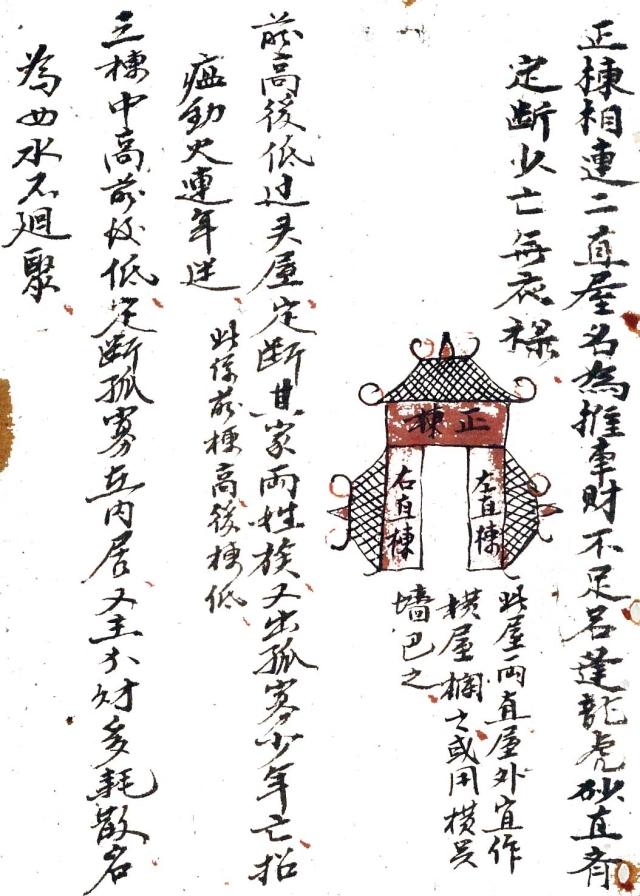 正棟相連二直屋名為推車財不足若逢龍虎砂直斉
定断少亡無衣禄
正棟
左直棟
右直棟
此屋両直屋外宜作
横屋欄之或用横
墻包之
前高後低过头屋定断其家両姓族又出孤寡少年亡招
瘟動火連年迸
此係前棟高後棟低
三棟中高前後低定断孤寡在内居又主小財多耗散名
為四水不廻聚